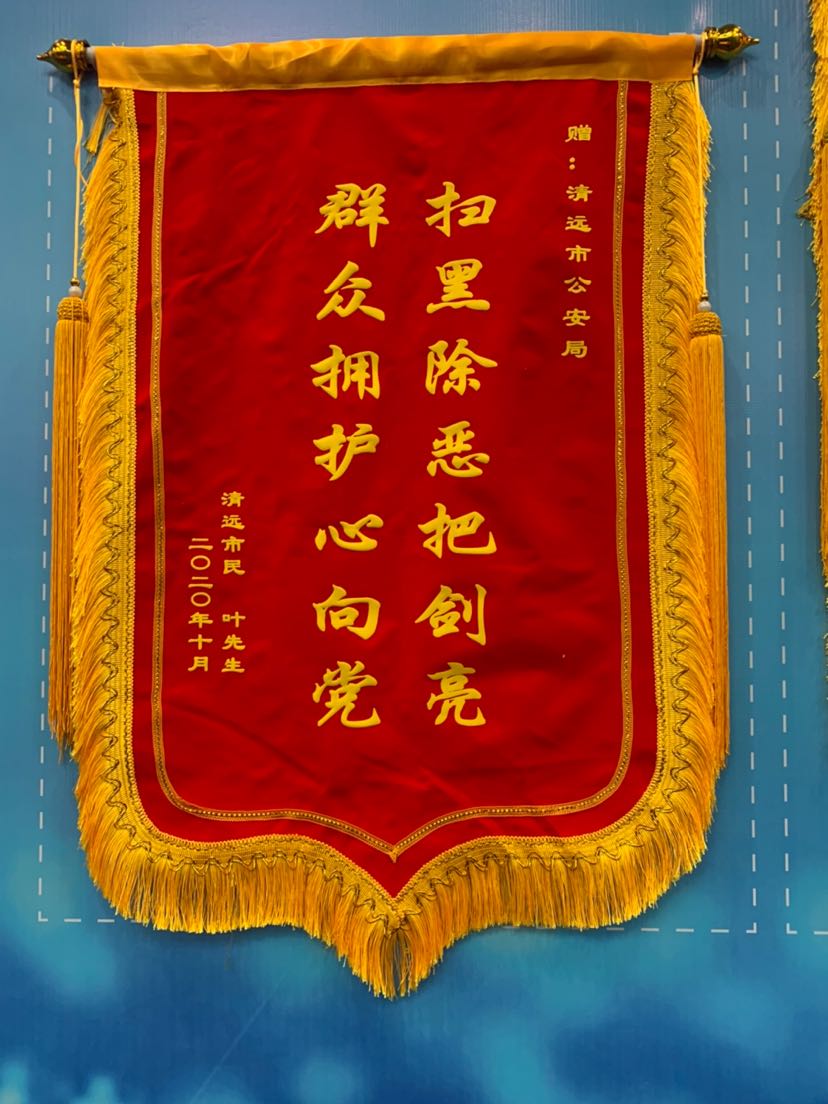 赠：清远市公安局
扫黑除恶把剑亮
群众拥护心向党
清远市民 叶先生
二〇二〇年十月